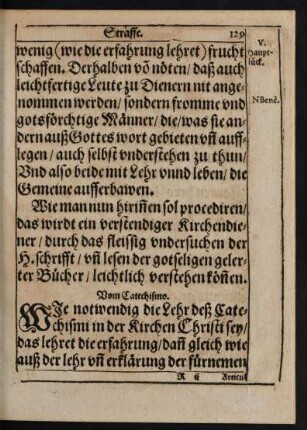 Straffe. 129
wenig (wie die erfahrung lehret) frucht
schaffen. Derhalben võ nöten / daß auch
leichtfertige Leute zu Dienern nit ange-
nommen werden / sondern fromme vnd
gotsförchtige Männer / die / was sie an-
dern auß Gottes wort gebieten vñ auff-
legen / auch selbst vnderstehen zu thun /
Vnd also beide mit Lehr vnnd leben / die
Gemeine aufferbawen.
Wie man nun hiriñen sol procediren /
das wirdt ein verstendiger Kirchendie-
ner / durch das fleissig vndersuchen der
H. schrifft / vñ lesen der gotseligen geler-
ter Bücher / leichtlich verstehen köñen.
Vom Catechismo.
WJe notwendig die Lehr deß Cate-
chismi in der Kirchen Christi sey /
das lehret die erfahrung / dañ gleich wie
auß der lehr vñ erklärung der fürnemen
R ij Articul
V.
Haupt-
stück.
NBenè.